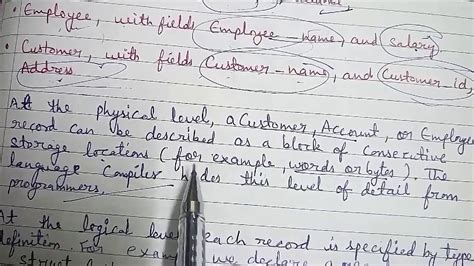 • Employee, with fields Employee-name, and Salary
• Customer, with fields Customer-name, and Customer-id,
Address
At the physical level, a Customer, Account, or Employee
record can be described as a block of Consecutive
storage locations (for example, words or bytes). The
language compiler hides this level of detail from
programmers,
At the logical level, each record is specified by type
definition. For example we declare a
struct